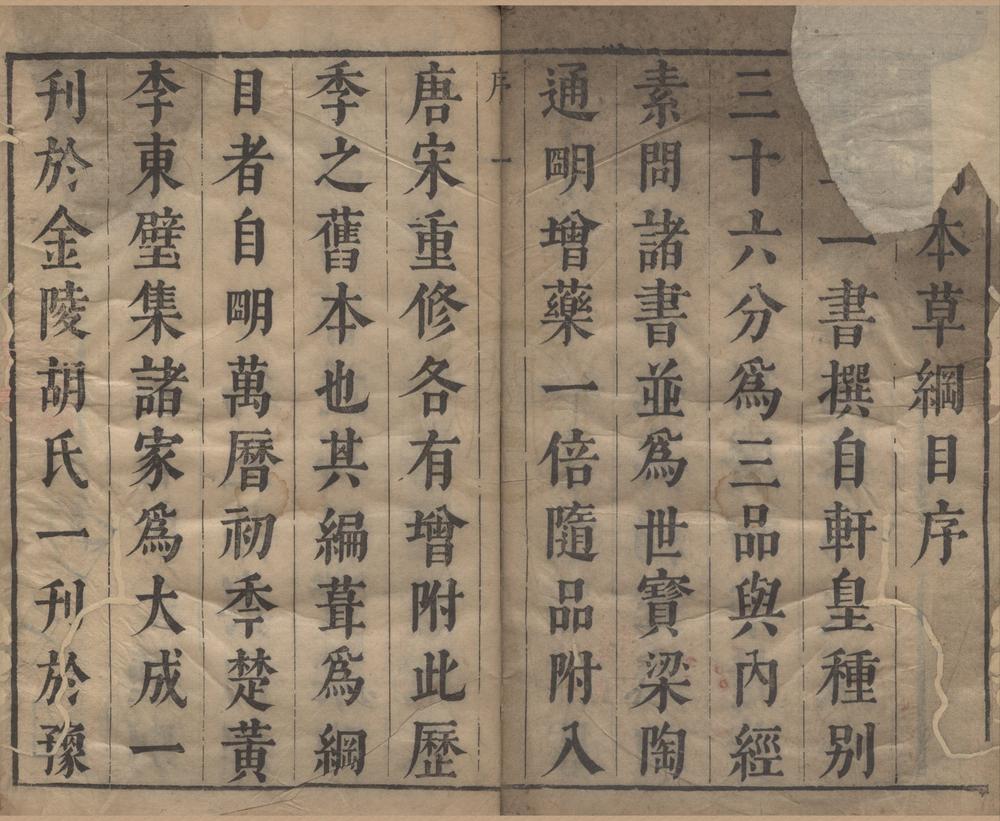 本草綱目序
一書撰自軒皇種別
三十六分爲三品與內經
素問諸書並爲世寶梁陶
通明增藥一倍隨品附入
序 一
唐宋重修各有增附此歷
季之舊本也其編葺爲綱
目者自明萬曆初季楚黃
李東璧集諸家爲大成一
刊於金陵胡氏一刊於豫